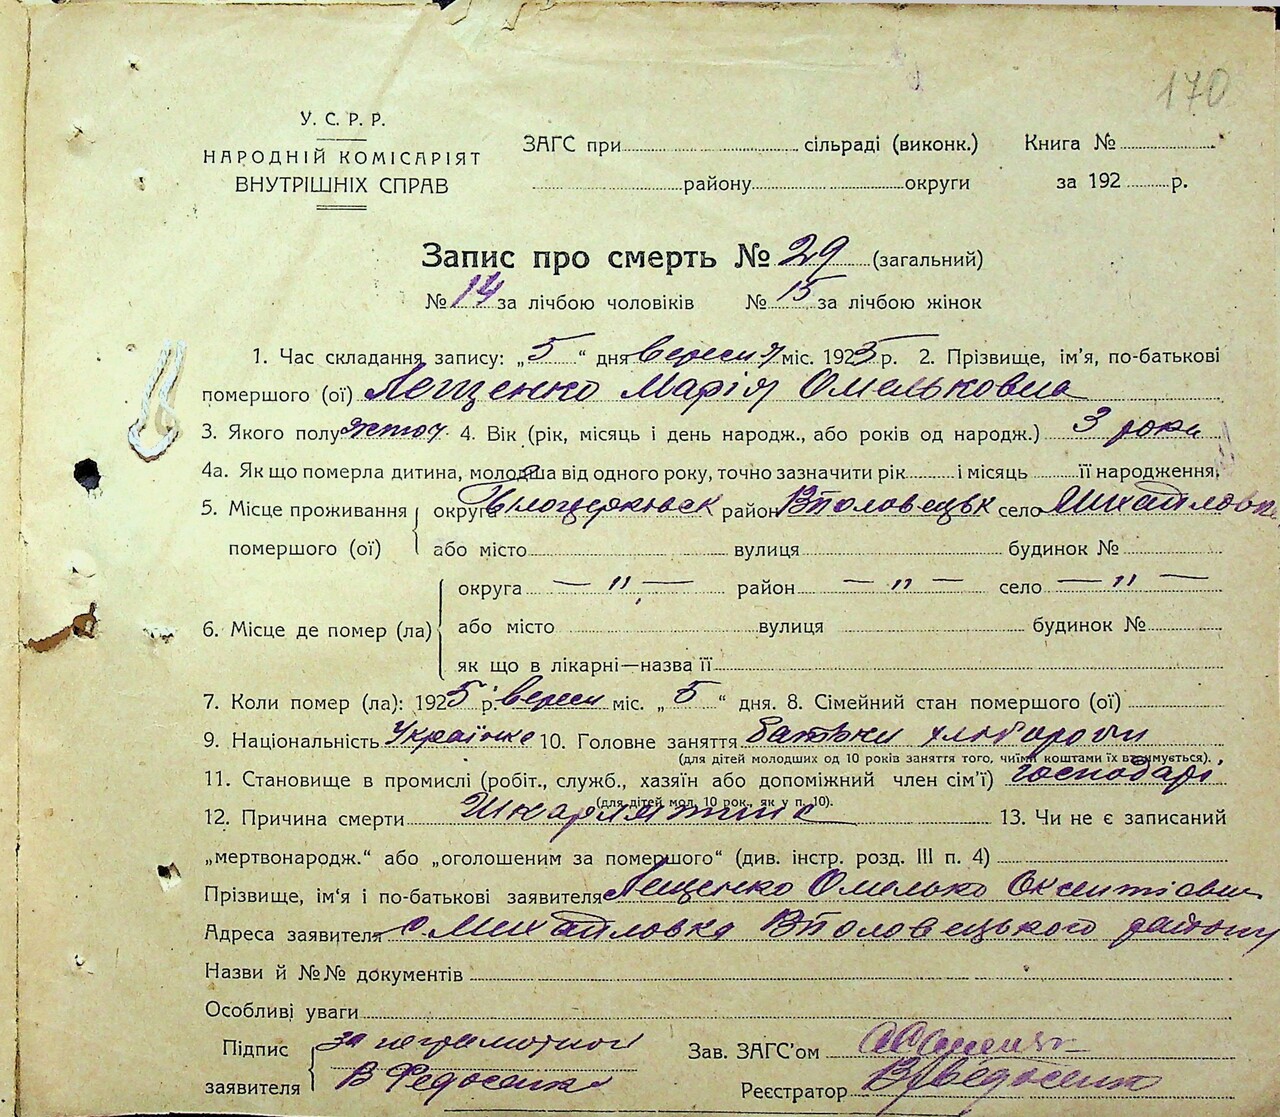 170
У. С. Р. Р.
НАРОДНІЙ КОМІСАРІЯТ
ВНУТРІШНІХ СПРАВ
ЗАГС при сільраді (виконк.) Книга №
району округи за 192 р.
Запис про смерть № 29 (загальний)
№ 14 за лічбою чоловіків № 15 за лічбою жінок
1. Час складання запису: „5“ дня вересня міс. 1925 р. 2. Прізвище, ім’я, по-батькові
помершого (ої) Лещенко Марія Омельковна
3. Якого полу жіноч 4. Вік (рік, місяць і день народж., або років од народж.) 3 роки
4а. Як що померла дитина, молодша від одного року, точно зазначити рік і місяць її народження.
5. Місце проживання помершого (ої) округа Білоцерковск район Вполовецьк село Михайловка
або місто вулиця будинок №
6. Місце де помер (ла) округа — „ — район — „ — село — „ —
або місто вулиця будинок №
як що в лікарні—назва її
7. Коли помер (ла): 1925 р. вересн міс. „5“ дня. 8. Сімейний стан помершого (ої)
9. Національність Українка 10. Головне заняття батьки хлібороби
(для дітей молодших од 10 років заняття того, чиїми коштами їх втримується).
11. Становище в промислі (робіт., служб., хазяїн або допоміжний член сім’ї) господарі
(для дітей мол. 10 рок., як у п. 10).
12. Причина смерти Шкарлятина 13. Чи не є записаний
„мертвонародж.“ або „оголошеним за помершого“ (див. інстр. розд. III п. 4)
Прізвище, ім’я і по-батькові заявителя Лещенко Омелько Оксентієвич
Адреса заявителя с. Михайловка Вполовецького району
Назви й №№ документів
Особливі уваги
Підпис заявителя за неграмотного
В Федосенко
Зав. ЗАГС’ом
Реєстратор В Федосенко